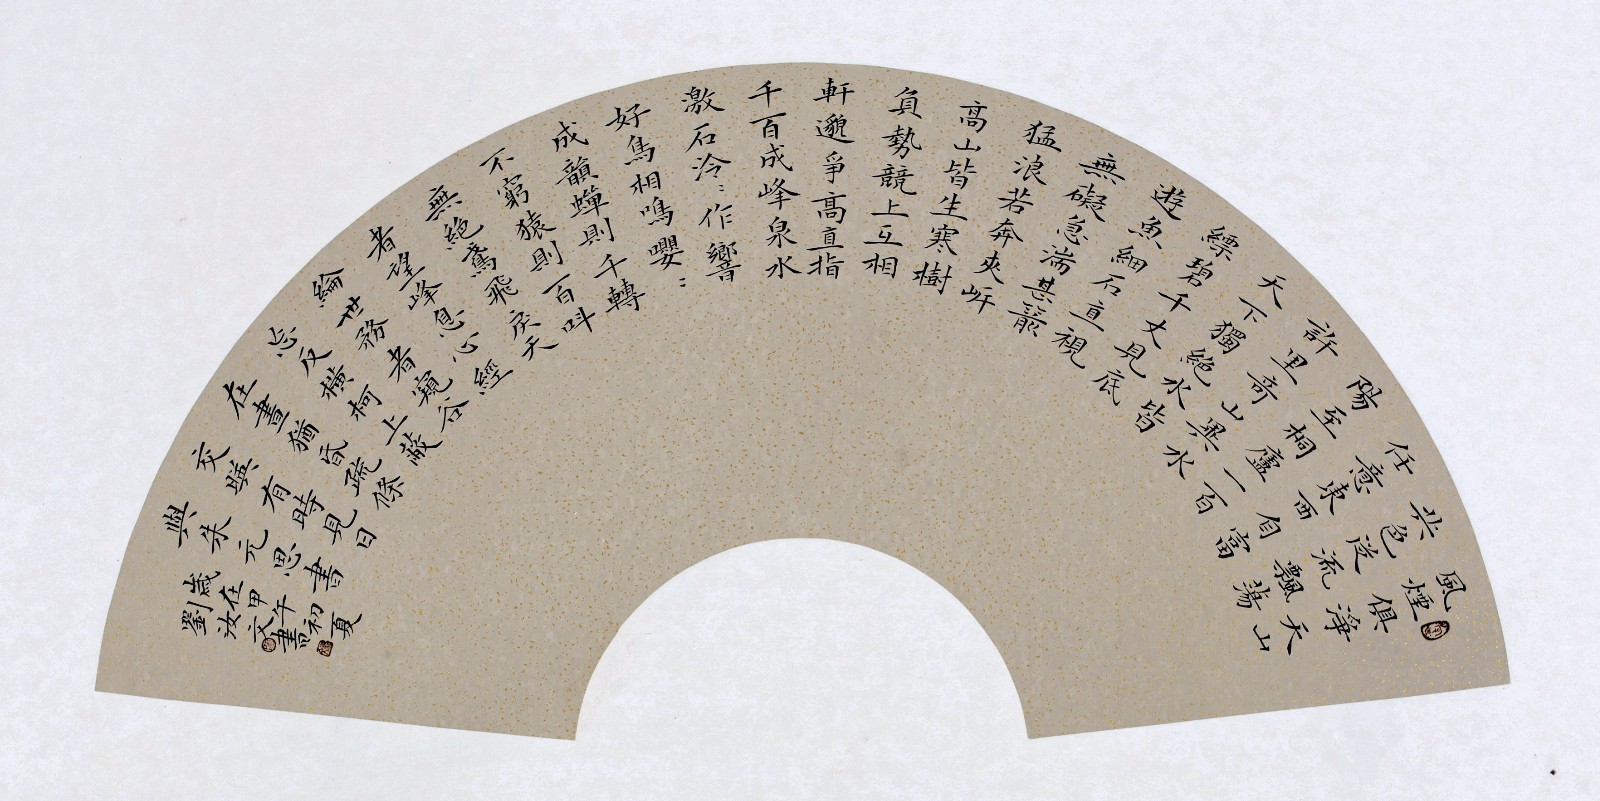 風煙俱淨天山
共色從流飄蕩
任意東西自富
陽至桐廬一百
許里奇山異水
天下獨絕水皆
縹碧千丈見底
遊魚細石直視
無礙急湍甚箭
猛浪若奔夾岍
高山皆生寒樹
負勢競上互相
軒邈爭高直指
千百成峰泉水
激石泠:作響
好鳥相鳴嚶:
成韻蟬則千轉
不窮猿則百叫
無絕鳶飛戾天
者望峰息心經
綸世務者窺谷
忘反橫柯上蔽
在晝猶昏疏條
交暎有時見日
與朱元思書
歲在甲午初夏
劉汝文書